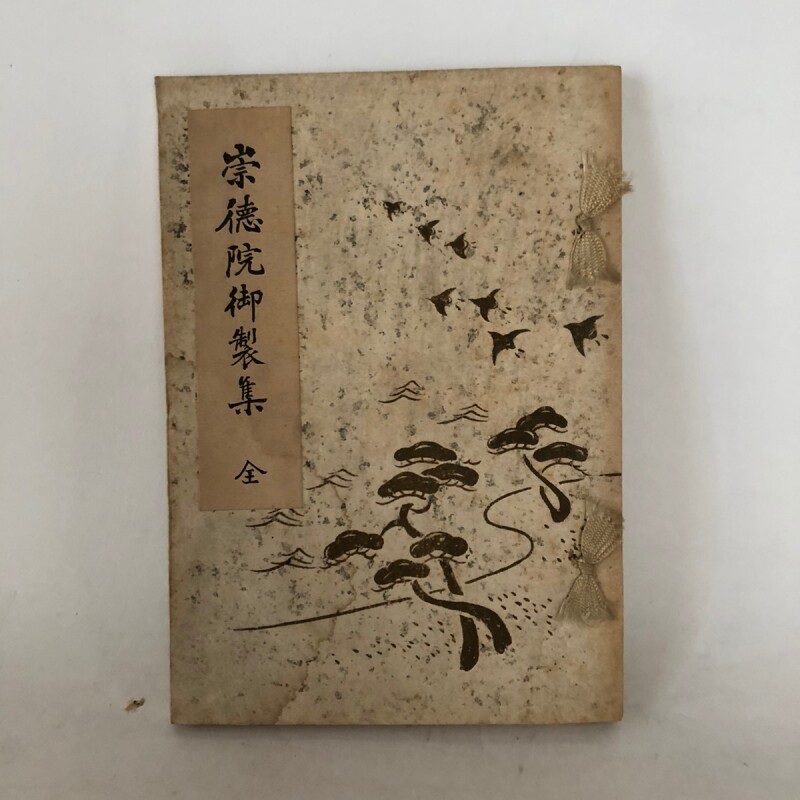 崇徳院御製集 全